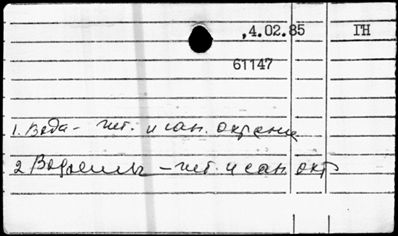 ,4.02.85 ГН
61147
1. Вода - гиг. и сан. охрана
2 Водоемы - гиг. и сан. охр